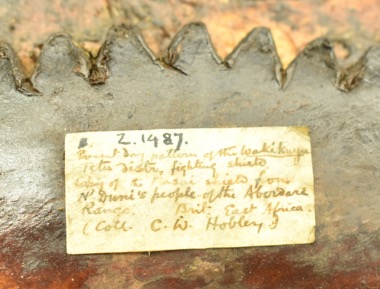 Z.1487.
Present Day pattern of the Wakikuyu
distr. fighting shield
shield from
N'Duni's people of the Aberdare
Range. Brit. East Africa.
(Coll. C. W. Hobley)